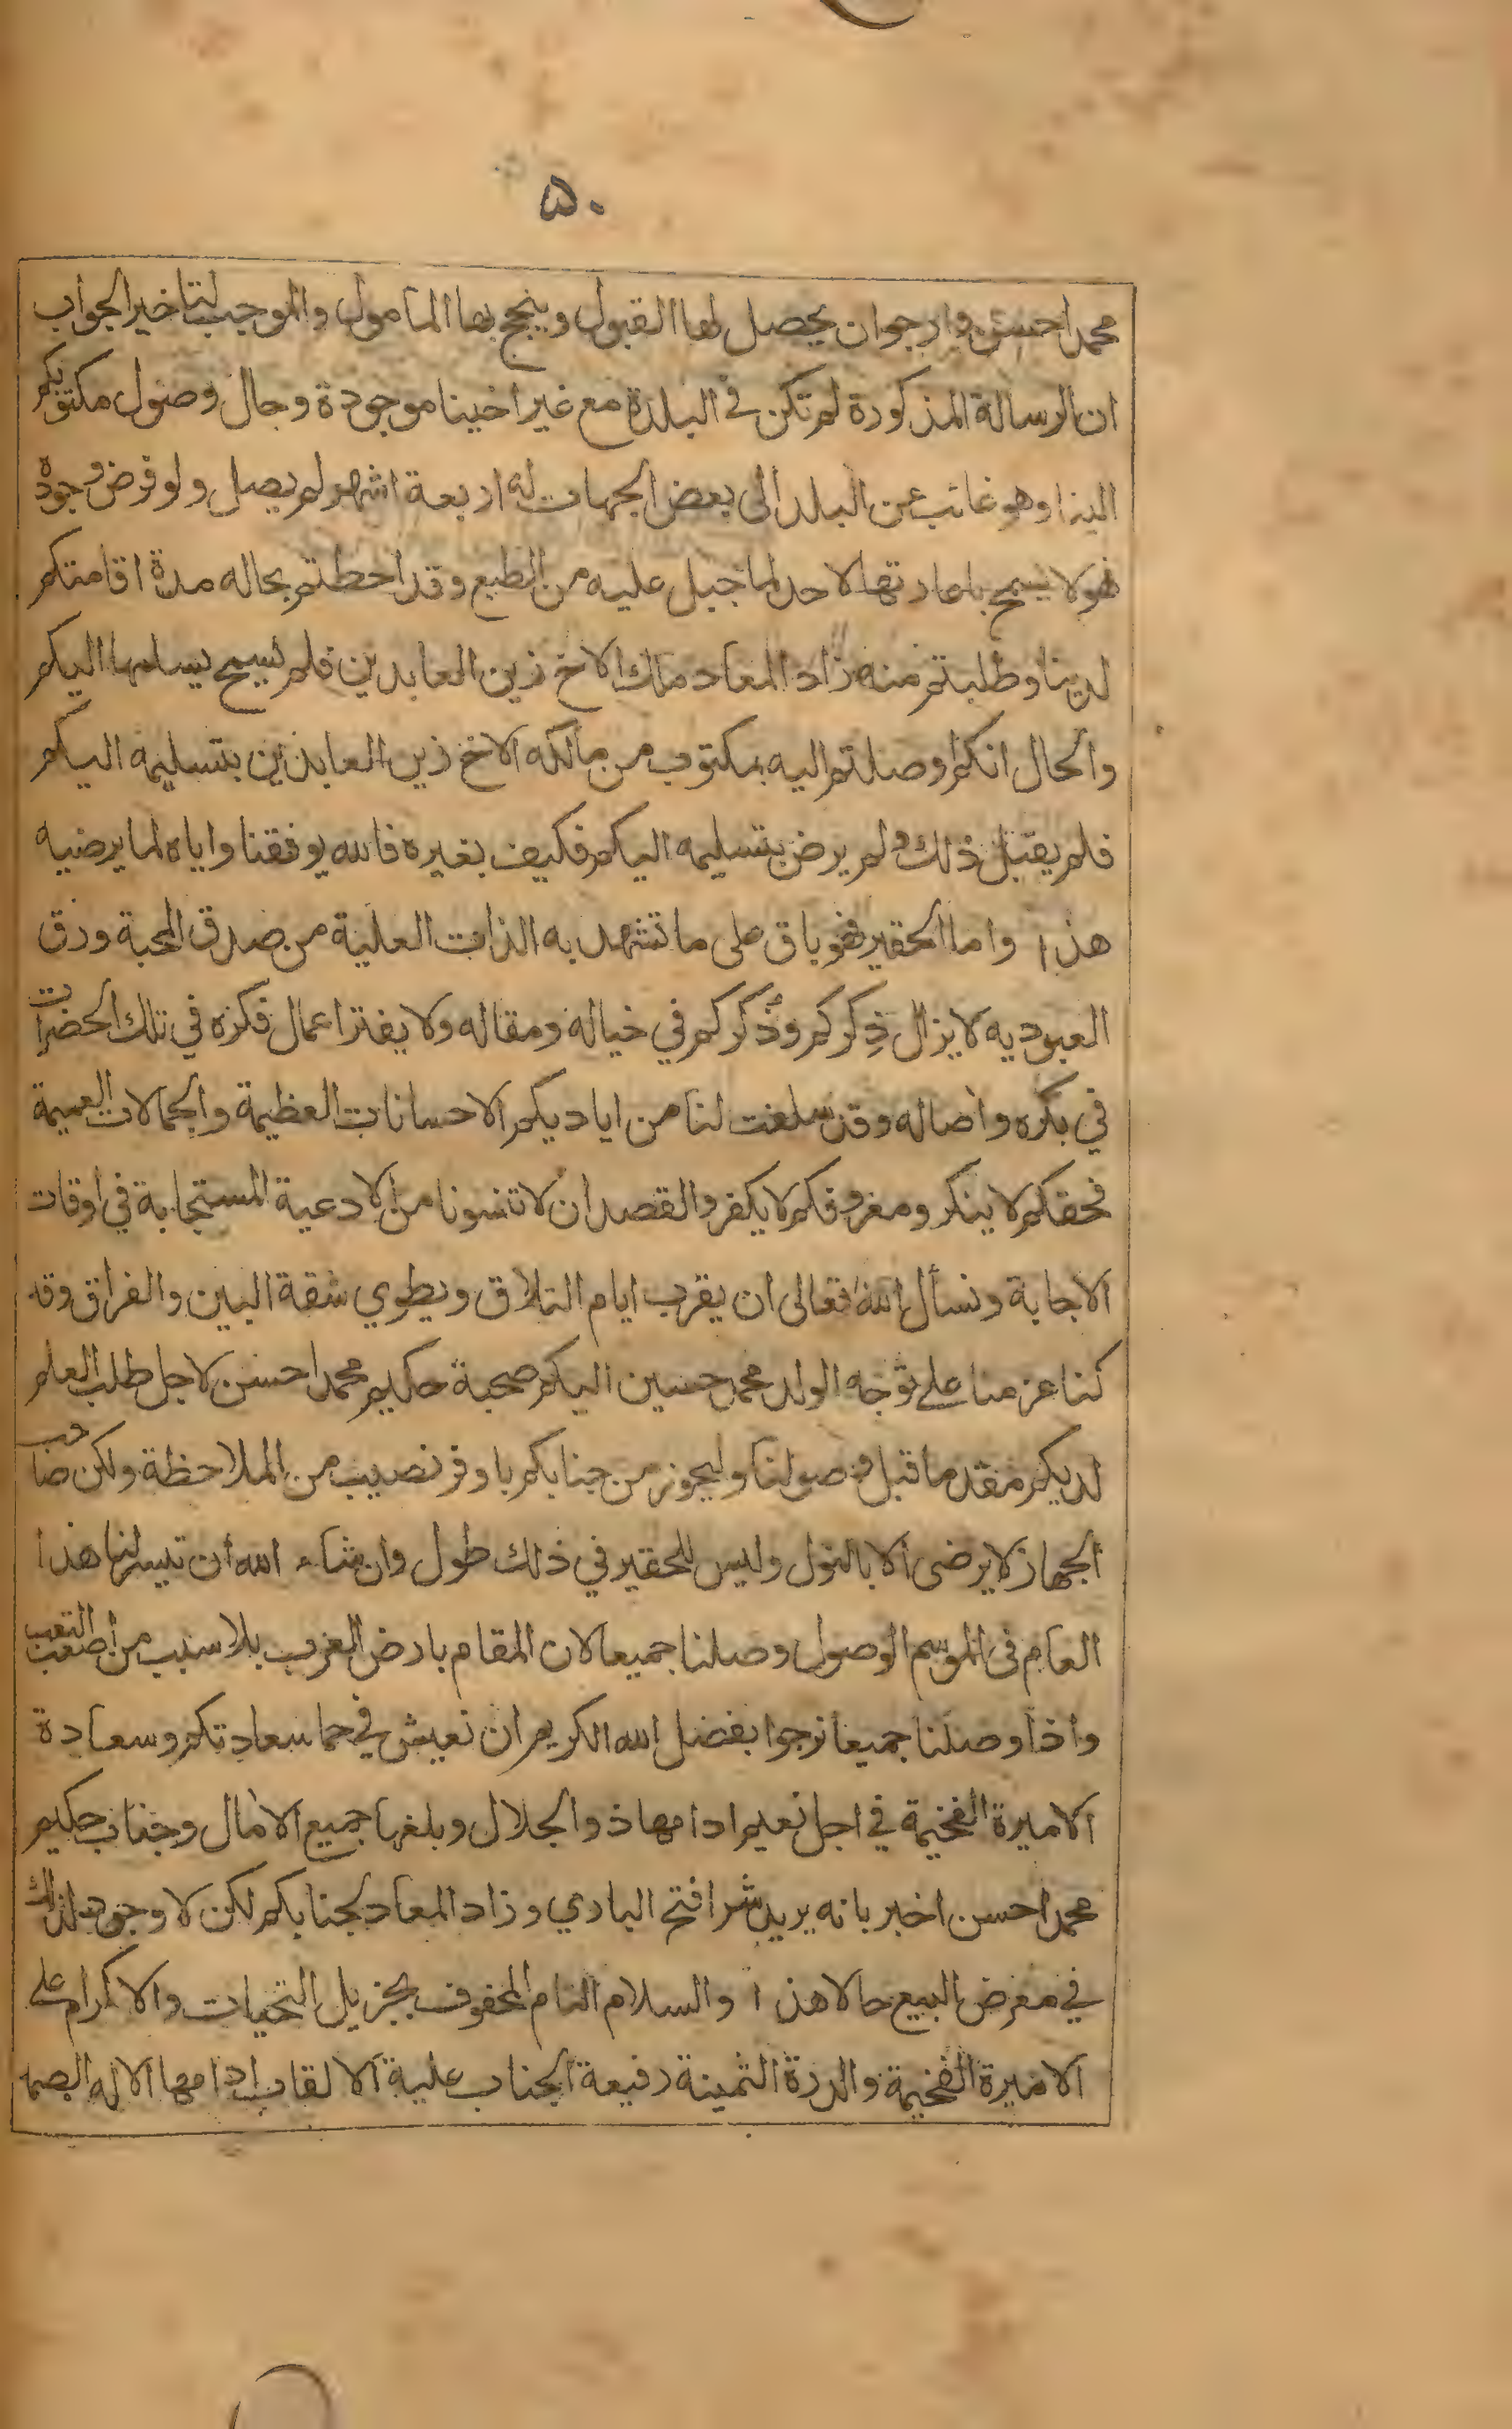 ۵۰
محمد احسن وارجوان يحصل لها القبول وينجح بها المأمول والموجب لتاخير الجواب
ان الرسالة المذكورة لم تكن في البلدة مع غير اخينا موجودة وحال وصول مكتوبكم
الينا وهو غائب عن البلد الى بعض الجهات له اربعة اشهر لم يصل ولو فرض وجوده
فهو لا يسمح باعارتها لاحد لما جبل عليه من الطبع وقد احطتم بحاله مدة اقامتكم
لدينا وطلبتم منه زاد المعاد ملك الاخ زين العابدين فلم يسمح يسلمها اليكم
والحال انكم اوصلتم اليه بمكتوب من مالكه الاخ زين العابدين بتسليمه اليكم
فلم يقبل ذلك ولم يرض بتسليمه اليكم فكيف بغيره فالله يوفقنا واياه لما يرضيه
هذا واما الحقير فهو باق على ما تشهد به الذات العلية من صدق المحبة ورق
العبوديه لا يزال ذِكركم وذُكركم في خياله ومقاله ولا يفتر اعمال فكره في تلك الحضرات
في بكره واصاله وقد سلفت لنا من اياديكم الاحسانات العظيمة والجمالات العميمة
فحقكم لا ينكر ومعروفكم لا يكفر والقصد ان لا تنسونا من الادعية المستجابة في اوقات
الاجابة ونسأل الله تعالى ان يقرب ايام التلاق ويطوي شقة البين والفراق وقد
كنا عزمنا على توجه الولد محمد حسين اليكم صحبة حكيم محمد احسن لاجل طلب العلم
لديكم مقدما قبل وصولنا وليحوز من جنابكم باوفر نصيب من الملاحظة ولكن صاحب
الجهاز لا يرضى الا بالنول وليس للحقير في ذلك طول وان شاء الله ان تيسر لنا هذا
العام في الموسم الوصول وصلنا جميعا لان المقام بارض العرب بلا سبب من اصعب التعب
واذا وصلنا جميعا نرجوا بفضل الله الكريم ان نعيش في حما سعادتكم وسعادة
الاميرة الفخيمة في اجل نعيم ادامها ذو الجلال وبلغها جميع الامال وجناب حكيم
محمد احسن اخبر بانه يريد شرا فتح الباري وزاد المعاد لجنابكم لكن لا وجود لذلك
في معرض البيع حالا هذا والسلام التام المحفوف بجزيل التحيات والاكرام على
الاميرة الفخيمة والدرة الثمينة رفيعة الجناب علية الالقاب ادامها الاله الصمد